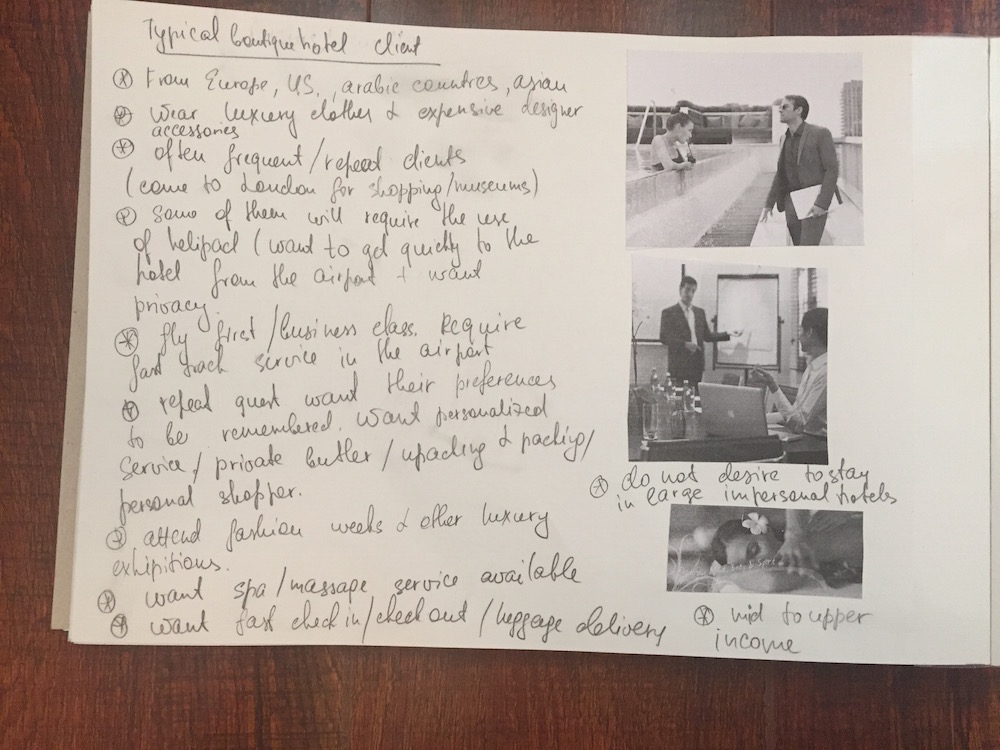 Typical boutique hotel client
From Europe, US, arabic countres, asian
Wear luxury clothes & expensive designer
accessories
often frequent/repeed clients
(come to London for shopping/museums)
some of them will require the use
of helipad (want to get quickly to the
hotel from the airport + want
privacy.
fly first/business class. Require
fast track service in the airport
repeat guest want their preferences
to be remembered. Want personalized
service/private butler/upacking & packing/
personal shopper.
attend fashion weeks & other luxury
exhipitions.
want spa/massage service available
want fast check in/check out/luggage delivery
do not desire to stay
in large impersonal hotels
mid to upper
income